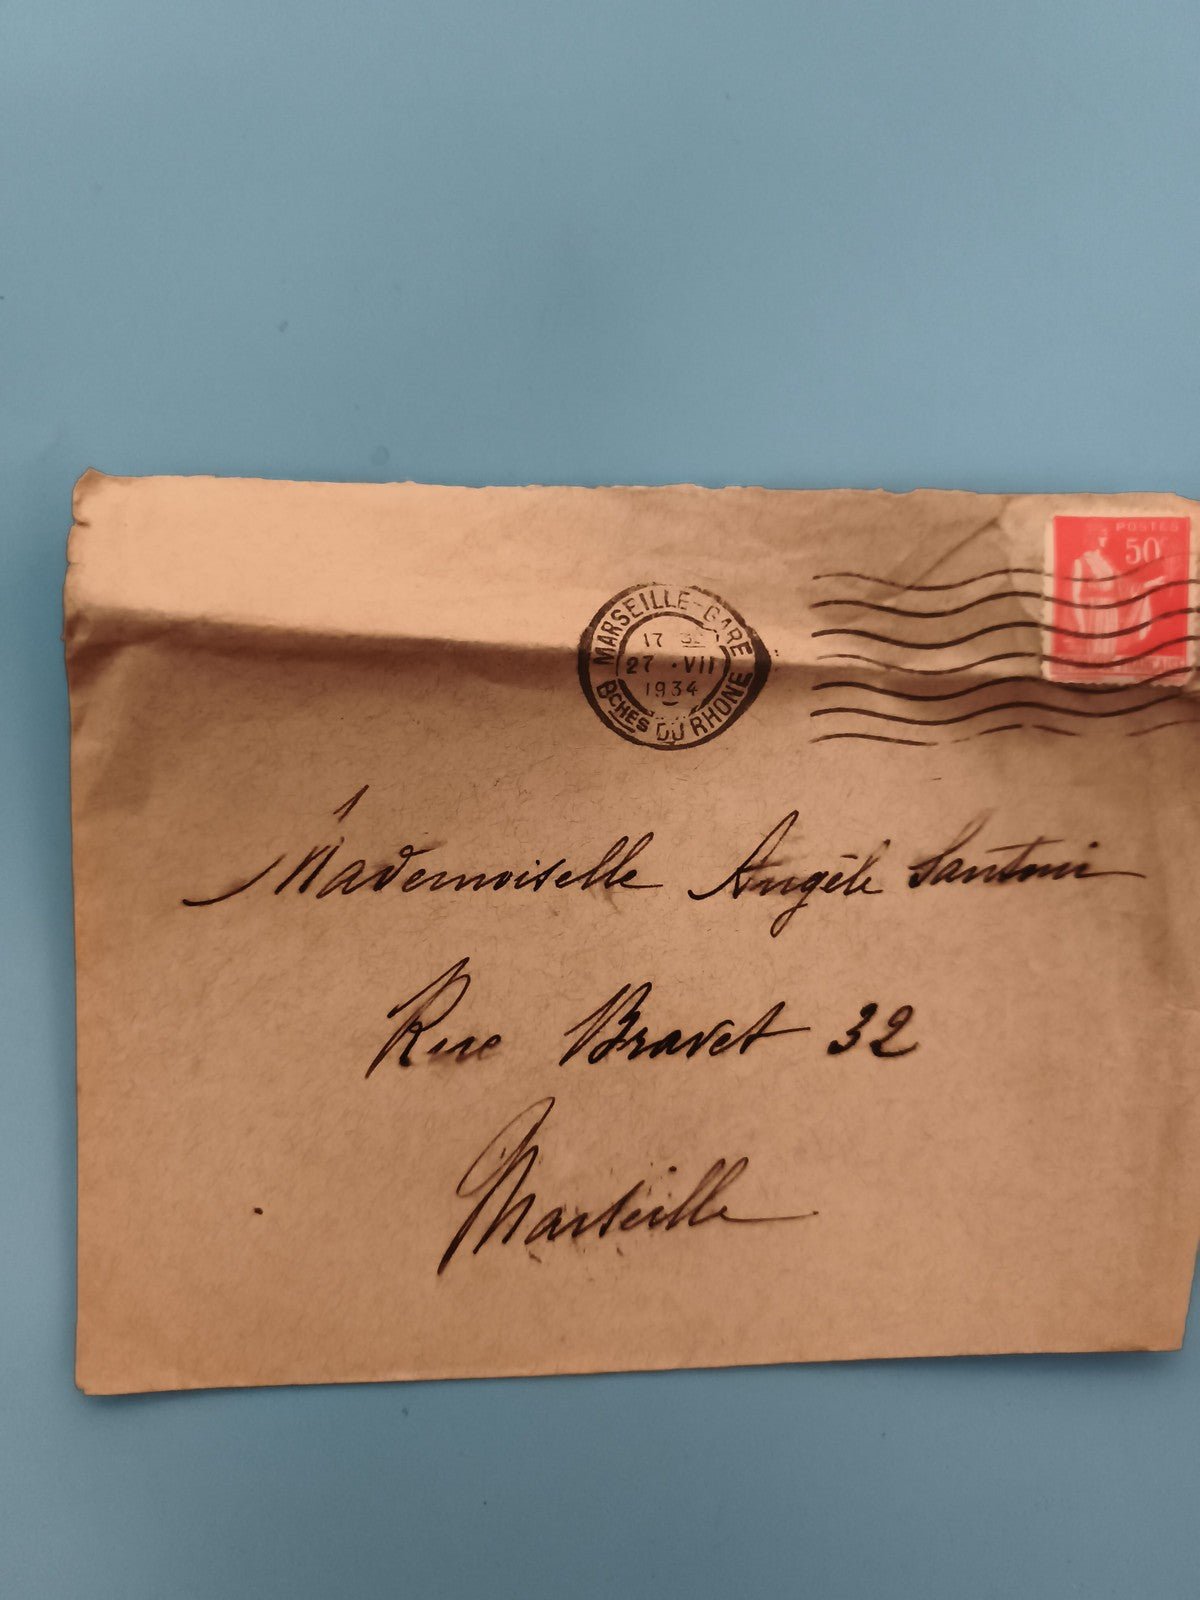 POSTES
50c
MARSEILLE-GARE
17 30
27 ·VII
1934
BCHES DU RHONE
Mademoiselle Angèle Santoni
Rue Bravet 32
Marseille